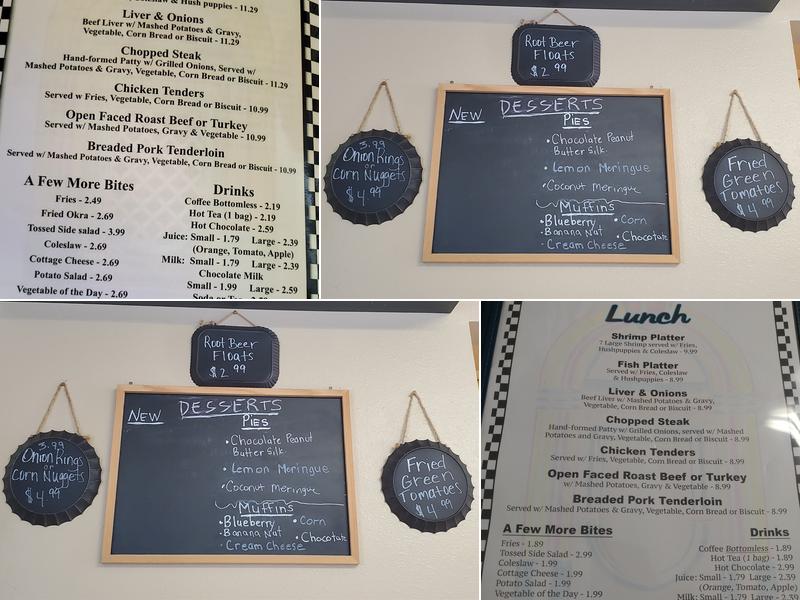 Coleslaw & Hush puppies - 11.29
Liver & Onions
Beef Liver w/ Mashed Potatoes & Gravy,
Vegetable, Corn Bread or Biscuit - 11.29
Chopped Steak
Hand-formed Patty w/ Grilled Onions, Served w/
Mashed Potatoes & Gravy, Vegetable, Corn Bread or Biscuit - 11.29
Chicken Tenders
Served w Fries, Vegetable, Corn Bread or Biscuit - 10.99
Open Faced Roast Beef or Turkey
Served w/ Mashed Potatoes, Gravy & Vegetable - 10.99
Breaded Pork Tenderloin
Served w/ Mashed Potatoes & Gravy, Vegetable, Corn Bread or Biscuit - 10.99
A Few More Bites
Fries - 2.49
Fried Okra - 2.69
Tossed Side salad - 3.99
Coleslaw - 2.69
Cottage Cheese - 2.69
Potato Salad - 2.69
Vegetable of the Day - 2.69
Drinks
Coffee Bottomless - 2.19
Hot Tea (1 bag) - 2.19
Hot Chocolate - 2.59
Juice: Small - 1.79 Large - 2.39
(Orange, Tomato, Apple)
Milk: Small - 1.79 Large - 2.39
Chocolate Milk
Small - 1.99 Large - 2.59
Root Beer
Floats
$2.99
3.99
Onion Rings
or
Corn Nuggets
$4.99
NEW
DESSERTS
PIES
• Chocolate Peanut
Butter Silk.
• Lemon Meringue
• Coconut Meringue
Muffins
• Blueberry • Corn
• Banana Nut • Chocolate
• Cream Cheese
Fried
Green
Tomatoes
$4.99
Root Beer
Floats
$2.99
3.99
Onion Rings
or
Corn Nuggets
$4.99
NEW
DESSERTS
PIES
• Chocolate Peanut
Butter Silk.
• Lemon Meringue
• Coconut Meringue
Muffins
• Blueberry • Corn
• Banana Nut • Chocolate
• Cream Cheese
Fried
Green
Tomatoes
$4.99
Lunch
Shrimp Platter
7 Large Shrimp served w/ Fries,
Hushpuppies & Coleslaw - 9.99
Fish Platter
Served w/ Fries, Coleslaw
& Hushpuppies - 8.99
Liver & Onions
Beef Liver w/ Mashed Potatoes & Gravy,
Vegetable, Corn Bread or Biscuit - 8.99
Chopped Steak
Hand-formed Patty w/ Grilled Onions, served w/ Mashed
Potatoes and Gravy, Vegetable, Corn Bread or Biscuit - 8.99
Chicken Tenders
Served w/ Fries, Vegetable, Corn Bread or Biscuit - 8.99
Open Faced Roast Beef or Turkey
w/ Mashed Potatoes, Gravy & Vegetable - 8.99
Breaded Pork Tenderloin
Served w/ Mashed Potatoes & Gravy, Vegetable, Corn Bread or Biscuit - 8.99
A Few More Bites
Fries - 1.89
Tossed Side Salad - 2.99
Coleslaw - 1.99
Cottage Cheese - 1.99
Potato Salad - 1.99
Vegetable of the Day - 1.99
Drinks
Coffee Bottomless - 1.89
Hot Tea (1 bag) - 1.89
Hot Chocolate - 2.99
Juice: Small - 1.79 Large - 2.39
(Orange, Tomato, Apple)
Milk: Small - 1.79 Large - 2.39